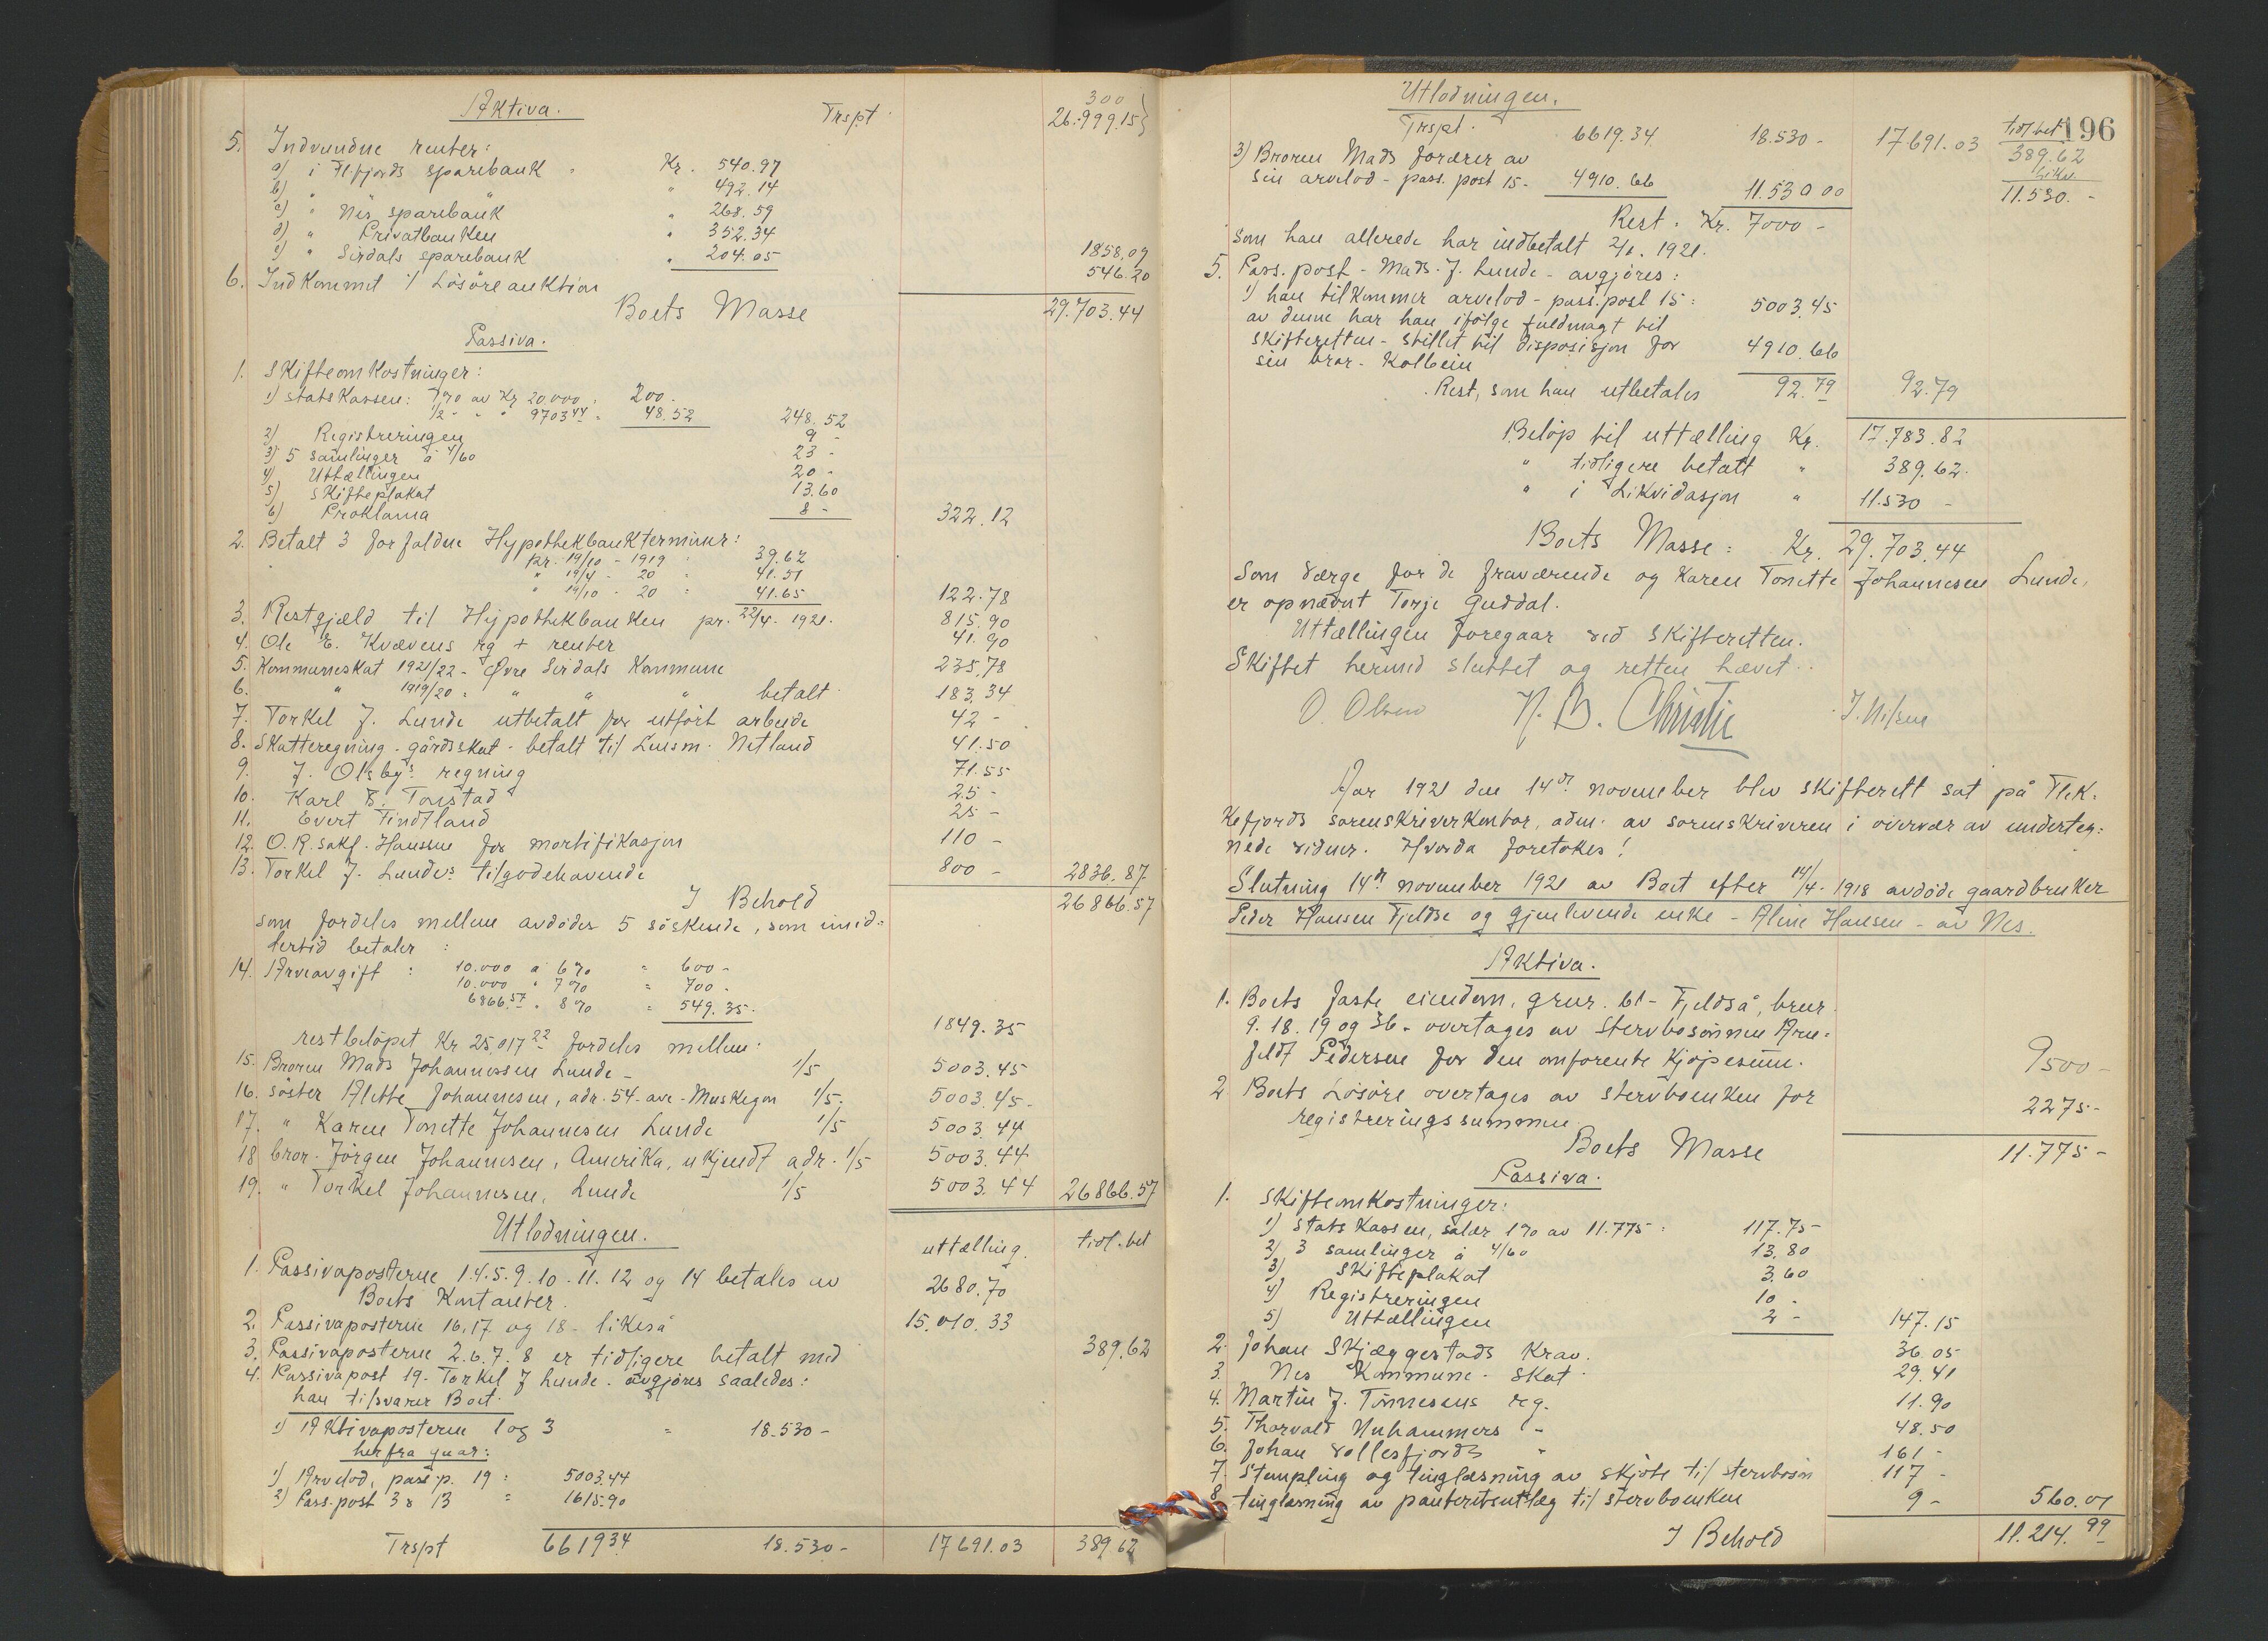 Aktiva.
Trspt.
300
26.999.15
5. Indvundne renter:
a) i Fl.fjords sparebank - Kr. 540.97
b) " " " 492.14
c) " Nes sparebank " 268.59
d) " Privatbanken " 352.34
e) " Sirdals sparebank " 204.05 1858.09
6. Indkommet v/ Lösöreauktion 546.20
Boets Masse 29.703.44
Passiva.
1. Skifteomkostninger:
1) Statskassen: 1% av Kr 20.000. 200.
1/2 - " " 9703.44 = 48.52 248.52
2) Registreringen 9 -
3) 5 samlinger à 4/60 23 -
4) Uttællingen 20 -
5) Skifteplakat 13.60
6) Proklama 8 - 322.12
2. Betalt 3 forfaldne Hypothekbankterminer:
pr. 19/10 - 1919 39.62
" 19/4 - 20 = 41.51
" 19/10 - 20 = 41.65 122.78
3. Restgjæld til Hypothekbanken pr. 22/4. 1921. 815.90
4. Ole E. Kvævens rg + renter 41.90
5. Kommuneskat 1921/22 - Øvre Sirdals Kommune 235.78
6. " 1919/20 = " " " betalt 183.34
7. Torkel J. Lunde utbetalt for utført arbeide 42 -
8. Skatteregning - gårdsskat - betalt til Lensm. Netland 41.50
9. J. Olsbys regning 71.55
10. Karl B. Tonstad 25 -
11. Evert Fintland 25 -
12. O.R. sakf. Hanssen for mortifikasjon 110 -
13. Torkel J. Lundes tilgodehavende 800 - 2836.87
I Behold 26866.57
som fordeles mellem avdödes 5 söskende, som imid=
lertid betaler :
14. Arveavgift : 10.000 à 6% = 600 -
10.000 " 7% = 700 -
6866.57 " 8% = 549.35. 1849.35
restbelöpet Kr 25.017.22 fordeles mellem:
15. Broren Mads Johannessen Lunde - 1/5 5003.45
16. söster Alette Johannesen, adr. 54 - ave - Muskegon 1/5. 5003.45 -
17. " Karen Tonette Johannesen Lunde 1/5 5003.44
18 bror - Jörgen Johannesen, Amerika, ukjendt adr. 1/5 5003.44
19. " Torkel Johannesen, Lunde 1/5 5003.44 26866.57
Utlodningen.
uttælling. tidl. bet
1. Passivaposterne 1.4.5.9.10.11.12 og 14 betales av
Boets Kontanter. 2680.70
2. Passivaposterne 16, 17 og 18 - likeså 15.010.33
3. Passivaposterne 2.6.7.8 er tidligere betalt med 389.62
4. Passivapost 19 - Torkel J Lunde - avgjøres saaledes:
han tilsvarer Boet.
1) Aktivaposterne 1 og 3 = 18.530 -
herfra gaar:
1) Arvelod, pass.p. 19 = 5003.44
2) Pass.post 3 & 13 = 1615.90
Trspt 6619.34 18.530 - 17691.03 389.62
Utlodningen.
196
Trspt. 6619.34 18.530 - 17691.03 tidl bet 389.62
3) Broren Mads forærer av
sin arvelod - pass. post 15 - 4910.66 11.530 00 11.530. -
Rest = Kr. 7000 -
som han allerede har indbetalt 2/6. 1921.
5. Pass. post - Mads J. Lunde - avgjöres:
1) han tilkommer arvelod - pass. post 15 = 5003.45
av denne har han ifölge fuldmagt til
skifteretten - stillet til disposisjon for
sin bror - Kolbein 4910.66
Rest, som han utbetales 92.79 92.79
Belöp til uttælling Kr. 17.783.82
" tidligere betalt " 389.62.
" i Likvidasjon " 11.530 -
Boets Masse = Kr. 29.703.44
Som værge for de fraværende og Karen Tonette Johannesen Lunde,
er opnævnt Torje Guddal.
Uttællingen foregaar ved skifteretten.
Skiftet hermed sluttet og retten hævet.
O. Olsen N. B. Christie J. Nilsen
Aar 1921 den 14de november blev skifterett sat på Flek=
kefjords sorenskriverkontor, adm. av sorenskriveren i overvær av underteg=
nede vidner. Hvorda foretokes!
Slutning 14de november 1921 av Boet efter 14/4. 1918 avdöde gaardbruker
Peder Hansen Fjeldse og gjenlevende enke - Aline Hansen - av Nes.
Aktiva.
1. Boets faste eiendom, grnr. 61 - Fjeldså, brnr.
9. 18. 19 og 36 - overtages av stervbosönnen Arn=
feldt Pedersen for den omforente Kjøpesum. 9500 -
2. Boets Lösöre overtages av stervboenken for
registreringssummen. 2275 -
Boets Masse 11.775 -
Passiva.
1. Skifteomkostninger:
1) Statskassen, salær 1% av 11.775 = 117.75 -
2) 3 samlinger à 4/60 13.80
3) Skifteplakat 3.60
4) Registreringen 10 -
5) Uttællingen 2 - 147.15
2. Johan Skjæggestads Krav. 36.05
3. Nes Kommune - skat. 29.41
4. Martin J. Tönnesens rg. 11.90
5. Thorvald Nuhammers " 48.50
6. Johan Vollesfjords " 161 -
7. Stempling og tinglæsning av skjöte til stervbosön 117 -
8. tinglæsning av panteretsutlæg til stervboenken 9 - 560.01
I Behold 11.214.99